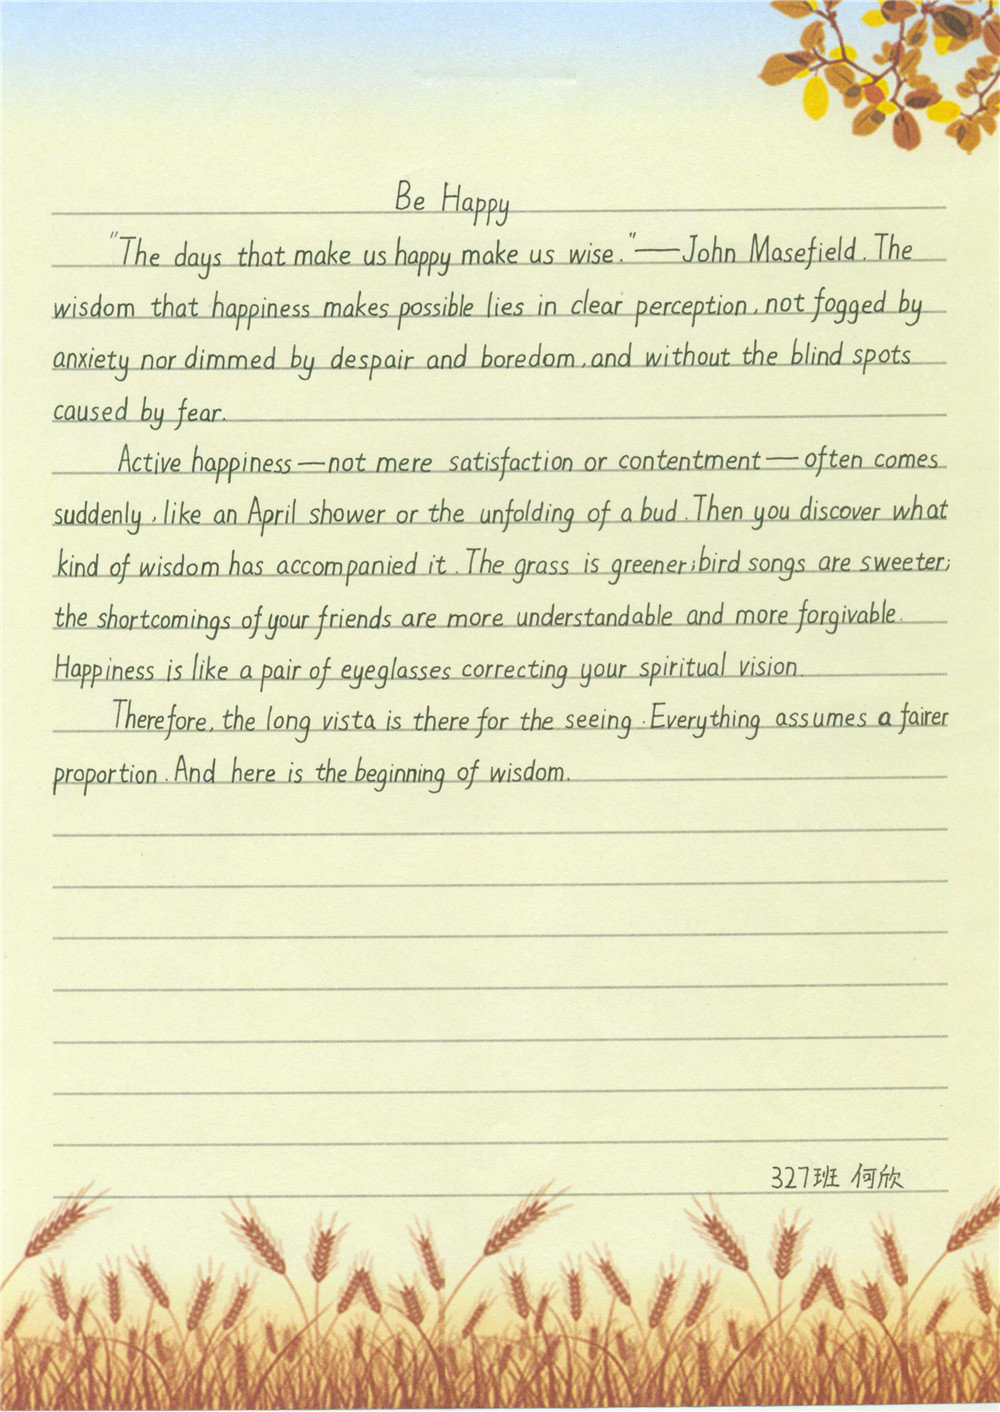 Be Happy
"The days that make us happy make us wise."——John Masefield. The
wisdom that happiness makes possible lies in clear perception, not fogged by
anxiety nor dimmed by despair and boredom, and without the blind spots
caused by fear.
Active happiness—not mere satisfaction or contentment—often comes
suddenly, like an April shower or the unfolding of a bud. Then you discover what
kind of wisdom has accompanied it. The grass is greener; bird songs are sweeter;
the shortcomings of your friends are more understandable and more forgivable.
Happiness is like a pair of eyeglasses correcting your spiritual vision.
Therefore, the long vista is there for the seeing. Everything assumes a fairer
proportion. And here is the beginning of wisdom.
327班 何欣